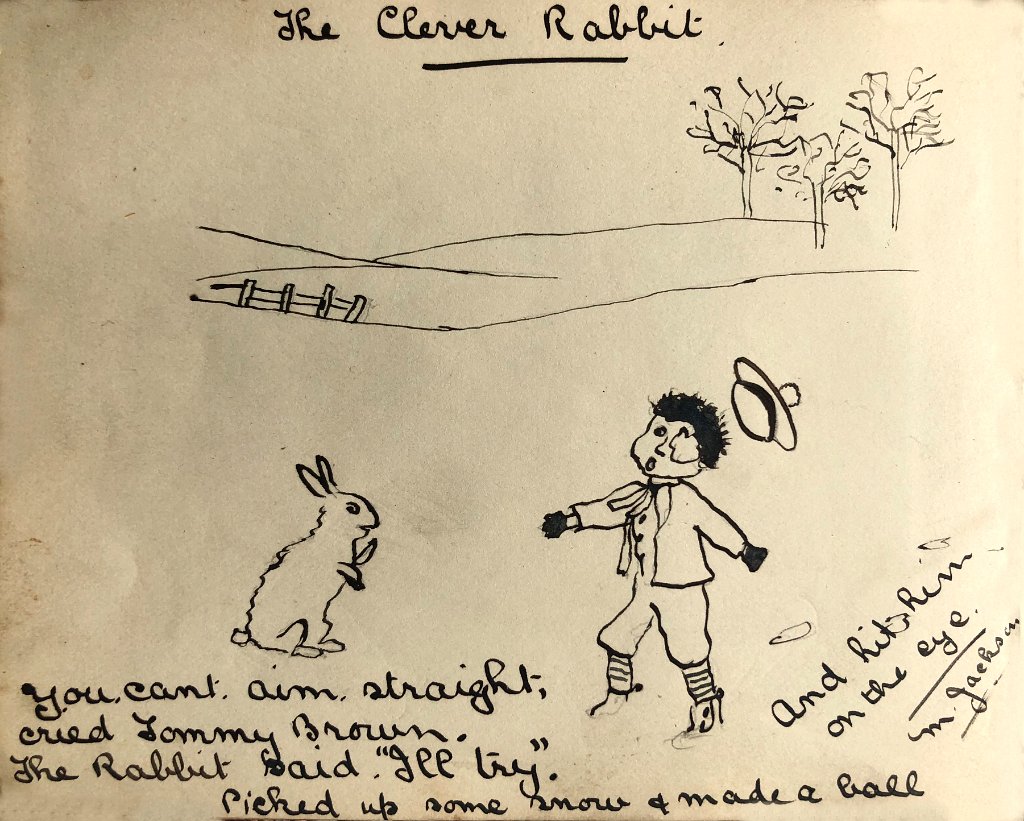 The Clever Rabbit.
You. cant. aim. straight,
cried Tommy Brown.
The Rabbit said. "Ill try".
Picked up some snow & made a ball
And hit him
on the eye.
M. Jackson.